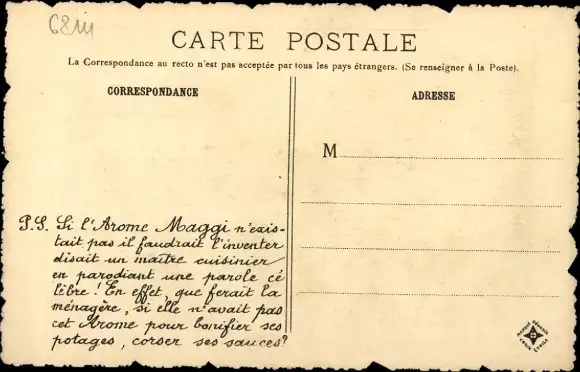 68m
CARTE POSTALE
La Correspondance au recto n'est pas acceptée par tous les pays étrangers. (Se renseigner à la Poste).
CORRESPONDANCE
ADRESSE
M
P.S. Si l'Arome Maggi n'exis-
tait pas il faudrait l'inventer
disait un maître cuisinier
en parodiant une parole cé
lèbre! En effet, que ferait la
ménagère, si elle n'avait pas
cet Arome pour bonifier ses
potages, corser ses sauces?